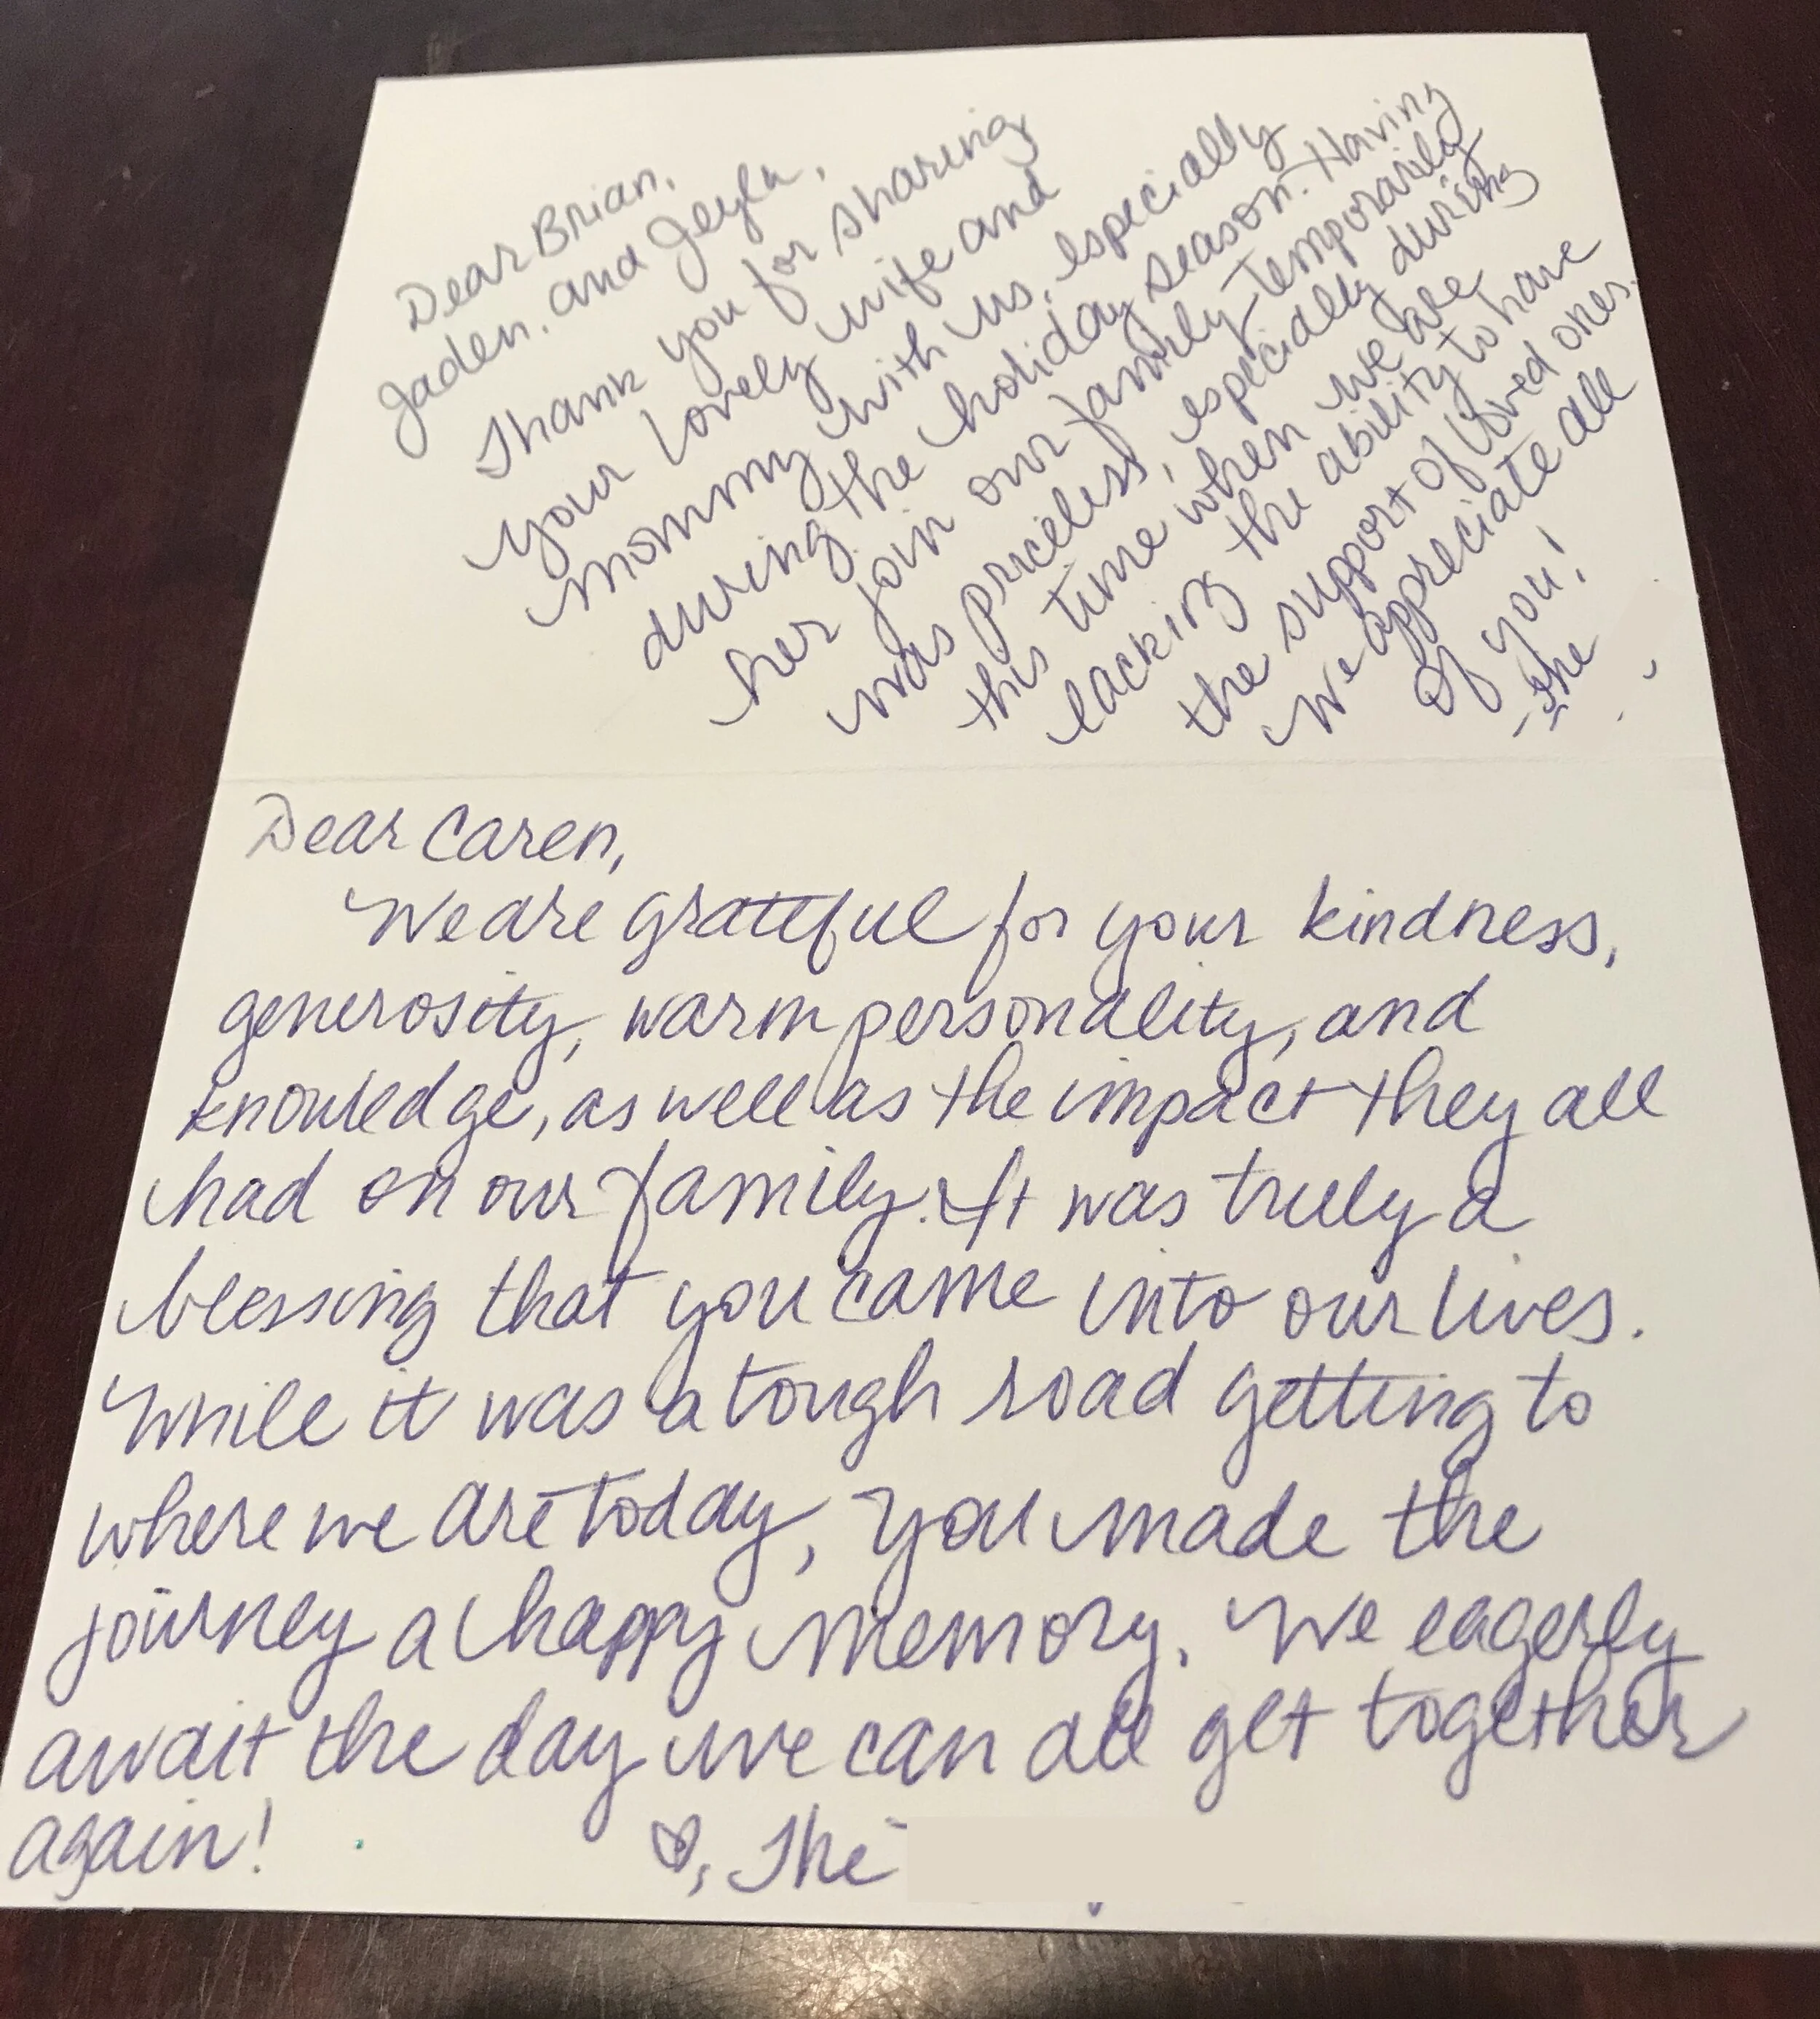 Dear Brian,
Jaden, and Jeyla,
Thank you for sharing
your lovely wife and
mommy with us, especially
during the holiday season. Having
her join our family temporarily
was priceless, especially during
this time when we are
lacking the ability to have
the support of loved ones.
We appreciate all
of you!
- The
Dear Caren,
We are grateful for your kindness,
generosity, warm personality, and
knowledge, as well as the impact they all
had on our family. It was truly a
blessing that you came into our lives.
While it was a tough road getting to
where we are today, you made the
journey a happy memory. We eagerly
await the day we can all get together
again!
♡, The